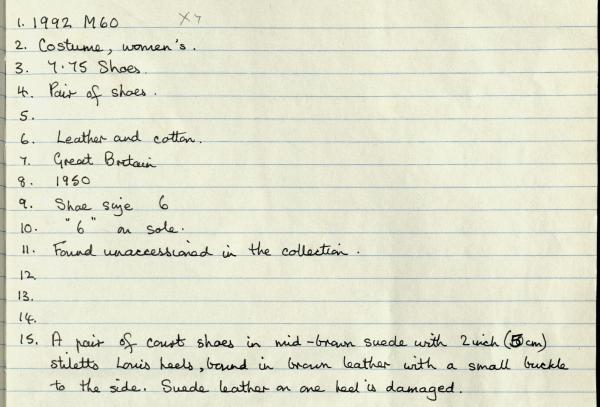 1. 1992 M60 X7
2. Costume, women's.
3. 7.75 Shoes.
4. Pair of shoes.
5.
6. Leather and cotton.
7. Great Britain
8. 1950
9. Shoe size 6
10. "6" on sole.
11. Found unaccessioned in the collection.
12.
13.
14.
15. A pair of court shoes in mid-brown suede with 2 inch (5cm)
stiletto Louis heels, bound in brown leather with a small buckle
to the side. Suede leather on one heel is damaged.